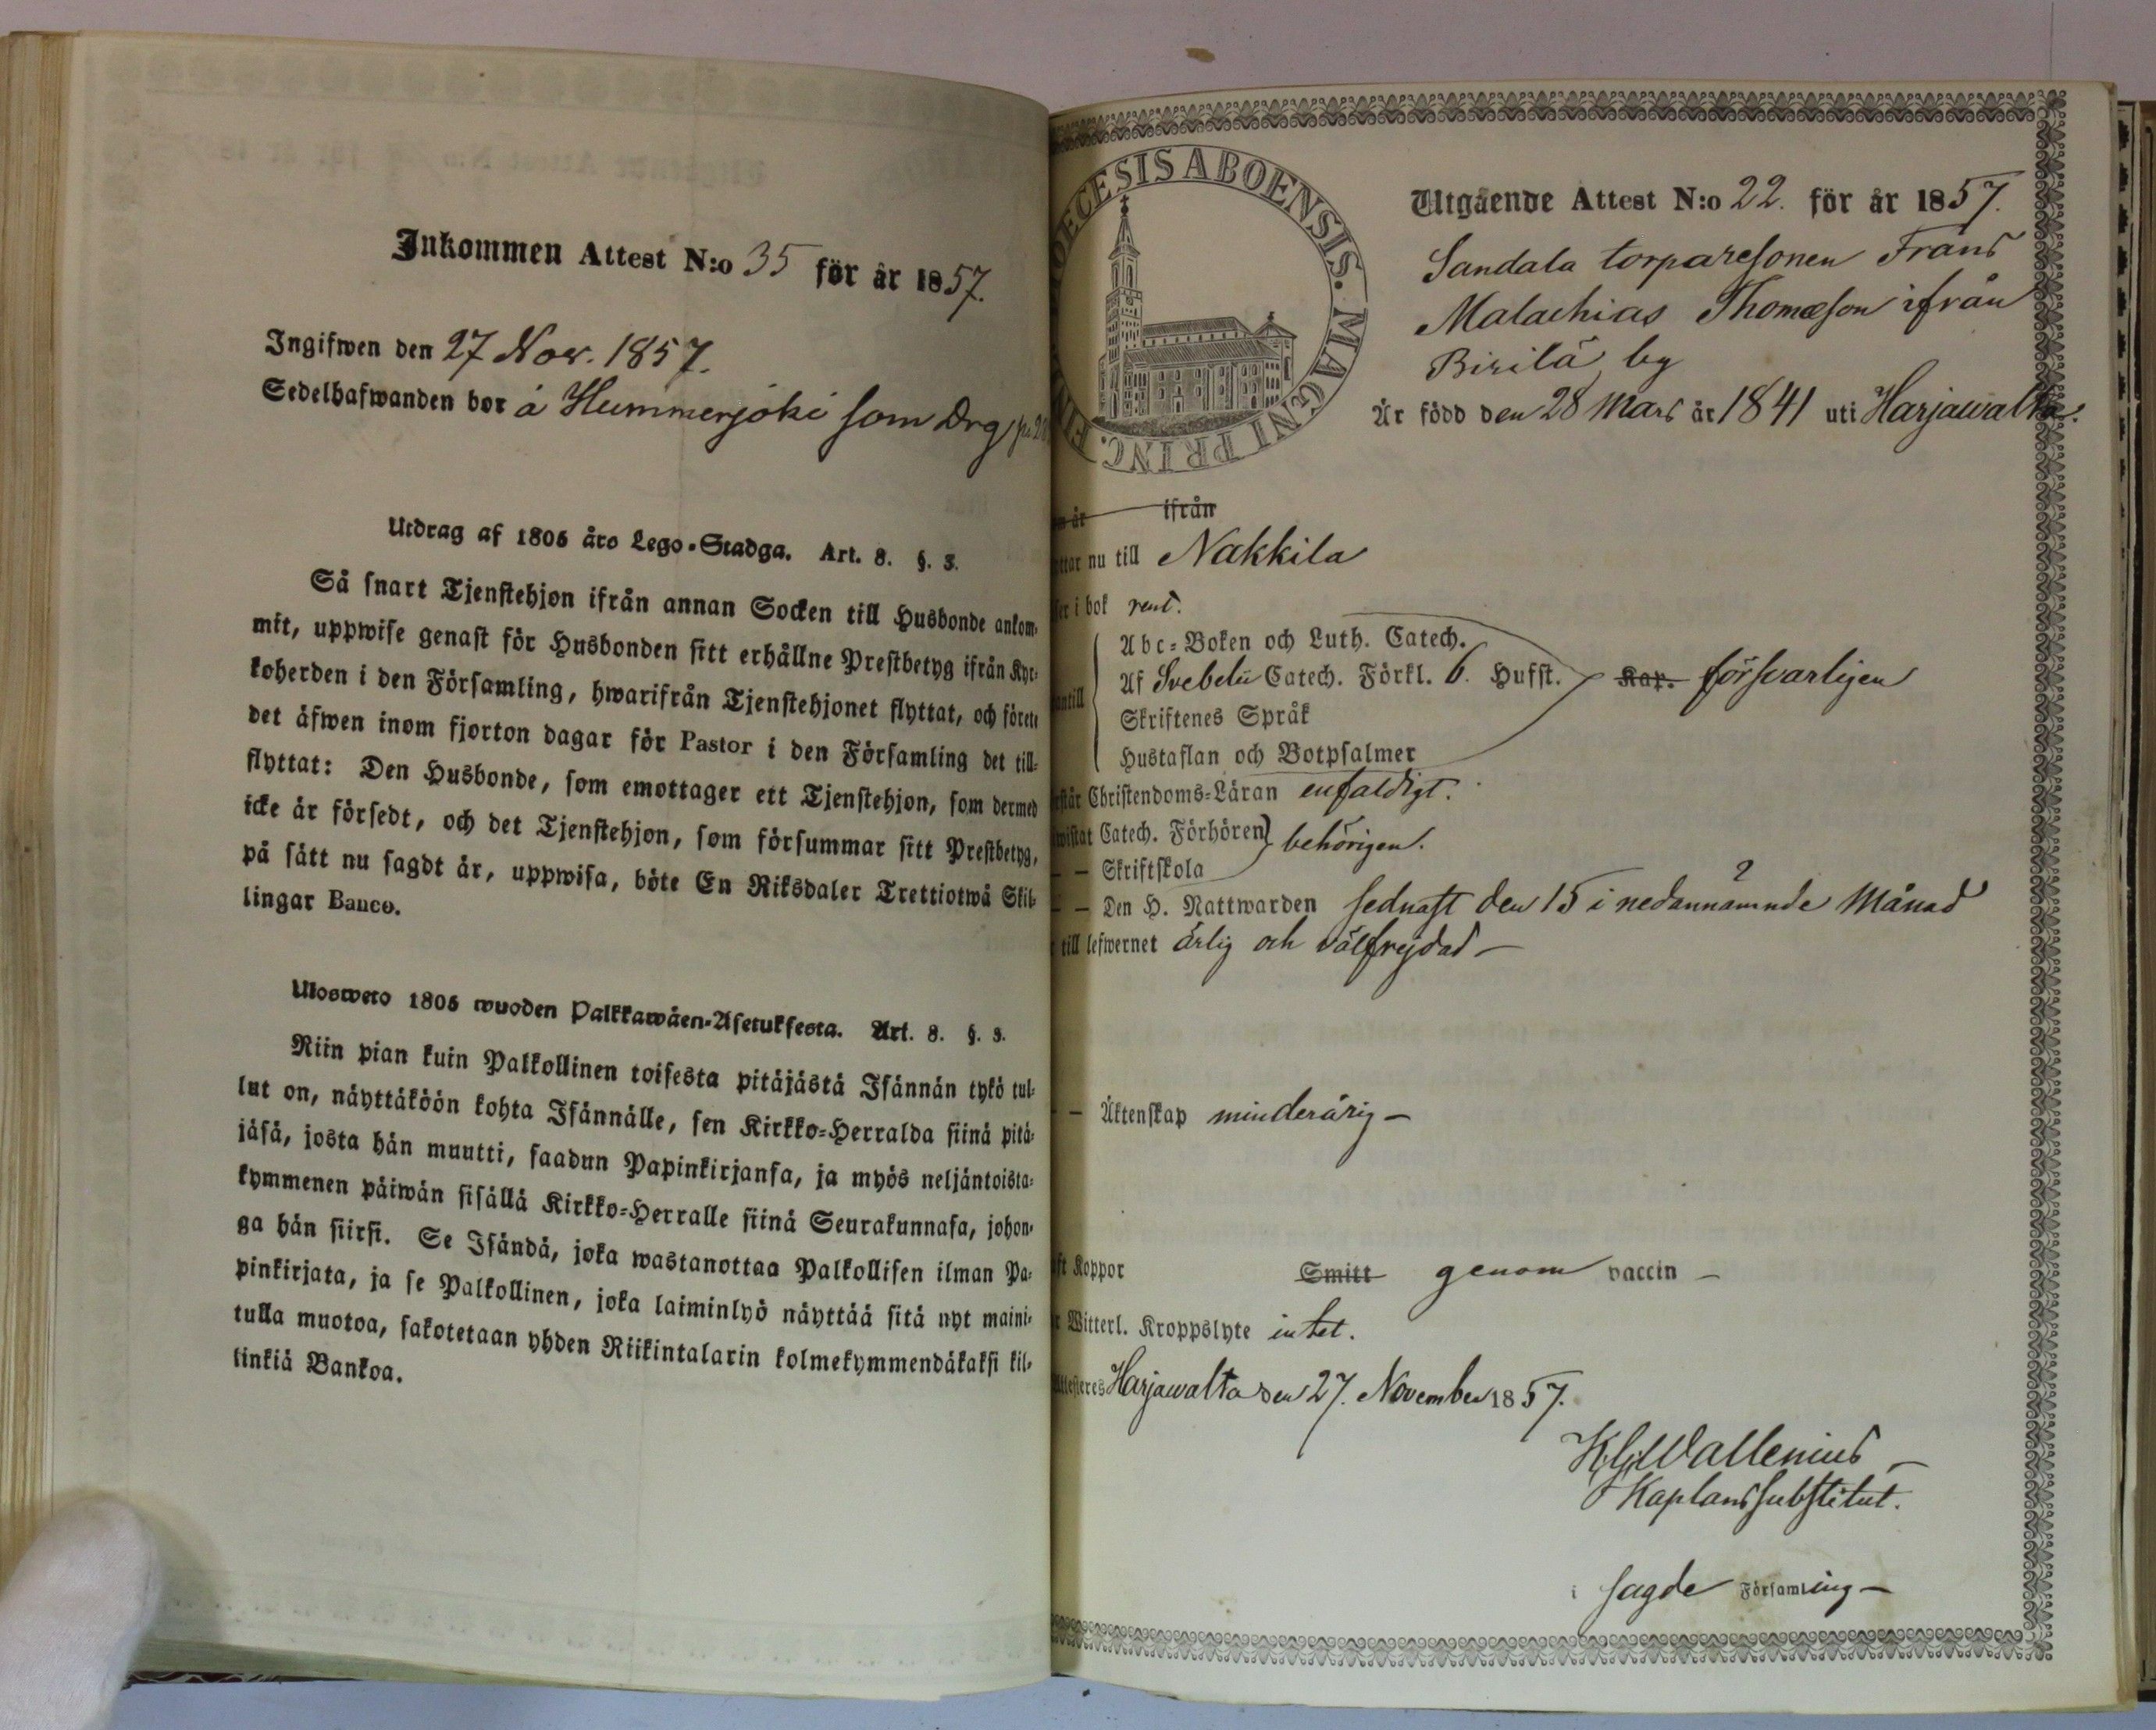 Inkommen Attest N:o 35 för år 1857.
Ingifwen den 27 Nov. 1857.
Sedelhafwanden bor å Hummerjoki som Drg
Utdrag af 1805 års Lego-Stadga. Art. 8. §. 3.
Så snart Tjenstehjon ifrån annan Socken till Husbonde ankom-
mit, uppwise genast för Husbonden sitt erhållne Prestbetyg ifrån Kyr-
koherden i den Församling, hwarifrån Tjenstehjonet flyttat, och förete
det äfwen inom fjorton dagar för Pastor i den Församling det till-
flyttat: Den Husbonde, som emottager ett Tjenstehjon, som dermed
icke är försedt, och det Tjenstehjon, som försummar sitt Prestbetyg,
på sätt nu sagdt är, uppwisa, böte En Riksdaler Trettiotwå Skil-
lingar Banco.
Ulosweto 1805 wuoden Palkkawäen-Asetuksesta. Art. 8. §. 3.
Niin pian kuin Palkollinen toisesta pitäjästä Isännän tykö tul-
lut on, näyttäköön kohta Isännälle, sen Kirkko-Herralda siinä pitä-
jäsä, josta hän muutti, saadun Papinkirjansa, ja myös neljäntoista-
kymmenen päiwän sisällä Kirkko-Herralle siinä Seurakunnasa, johon-
ga hän siirsi. Se Isändä, joka wastanottaa Palkollisen ilman Pa-
pinkirjata, ja se Palkollinen, joka laiminlyö näyttää sitä nyt maini-
tulla muotoa, sakotetaan yhden Riikintalarin kolmekymmendäkaksi kil-
linkiä Bankoa.
OECESIS ABOENSIS. MAGNI PRINC. FIN
Utgående Attest N:o 22. för år 1857.
Sandala torparesonen Frans
Malachias Thomæson ifrån
Birilä by
Är född den 28 Mars år 1841 uti Harjawalta.
är ifrån
ttar nu till Nakkila
ser i bok rent.
Abc-Boken och Luth. Catech.
antill Af Svebelii Catech. Förkl. 6. Hufst. Kap. försvarligen
Skriftenes Språk
Hustaflan och Botpsalmer
står Christendoms-Läran enfaldigt.
wistat Catech. Förhören behörigen.
— Skriftskola
— Den H. Nattwarden sednast den 15 i nedannämnde Månad
till lefwernet ärlig och välfrejdad —
— Äktenskap minderårig —
ft Koppor Smitt genom vaccin —
r Witterl. Kroppslyte intet.
Attesteres Harjawalta den 27. November 1857.
K.G. Wallenius —
Kaplans substitut.
i sagde Församling —